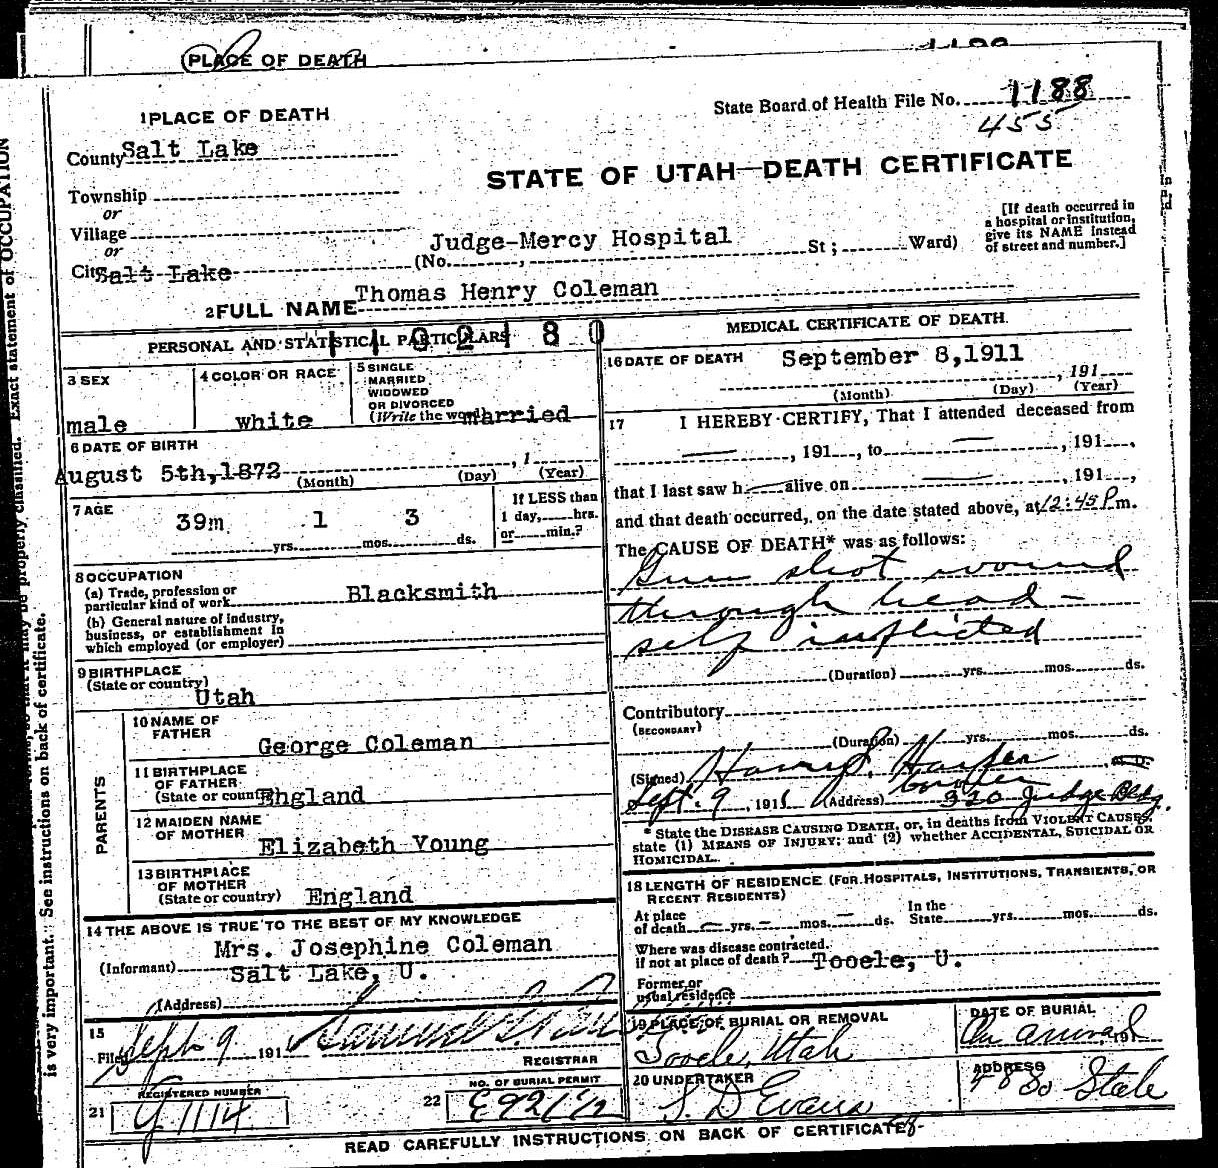 PLACE OF DEATH
State Board of Health File No. 1188
455
1 PLACE OF DEATH
County Salt Lake
STATE OF UTAH—DEATH CERTIFICATE
Township
or
Village
or
City Salt Lake
(No. Judge-Mercy Hospital St; Ward)
[If death occurred in
a hospital or institution,
give its NAME instead
of street and number.]
2 FULL NAME Thomas Henry Coleman
PERSONAL AND STATISTICAL PARTICULARS
3 SEX
male
4 COLOR OR RACE
white
5 SINGLE
MARRIED
WIDOWED
OR DIVORCED
(Write the word) married
6 DATE OF BIRTH
August 5th, 1872 , 1
(Month) (Day) (Year)
7 AGE
39m yrs. 1 mos. 3 ds.
If LESS than
1 day, hrs.
or min.?
8 OCCUPATION
(a) Trade, profession or
particular kind of work Blacksmith
(b) General nature of industry,
business, or establishment in
which employed (or employer)
9 BIRTHPLACE
(State or country)
Utah
PARENTS
10 NAME OF
FATHER
George Coleman
11 BIRTHPLACE
OF FATHER
(State or country) England
12 MAIDEN NAME
OF MOTHER
Elizabeth Young
13 BIRTHPLACE
OF MOTHER
(State or country) England
14 THE ABOVE IS TRUE TO THE BEST OF MY KNOWLEDGE
(Informant) Mrs. Josephine Coleman
Salt Lake, U.
(Address)
15
Filed Sept 9 191
REGISTRAR
21 REGISTERED NUMBER
22 NO. OF BURIAL PERMIT
MEDICAL CERTIFICATE OF DEATH
16 DATE OF DEATH September 8, 1911
, 191
(Month) (Day) (Year)
17 I HEREBY CERTIFY, That I attended deceased from
— , 191 , to — , 191 ,
that I last saw h — alive on — , 191 ,
and that death occurred, on the date stated above, at 12:45 P m.
The CAUSE OF DEATH* was as follows:
Gun shot wound
through head —
self inflicted
(Duration) yrs. mos. ds.
Contributory
(SECONDARY)
(Duration) yrs. mos. ds.
(Signed) Harry S. Harper M. D.
Sept. 9, 1911 (Address) 320 Judge Bldg.
* State the DISEASE CAUSING DEATH, or, in deaths from VIOLENT CAUSES,
state (1) MEANS OF INJURY; and (2) whether ACCIDENTAL, SUICIDAL OR
HOMICIDAL.
18 LENGTH OF RESIDENCE (FOR HOSPITALS, INSTITUTIONS, TRANSIENTS, OR
RECENT RESIDENTS)
At place
of death — yrs. — mos. — ds.
In the
State yrs. mos. ds.
Where was disease contracted.
if not at place of death? Tooele, U.
Former or
usual residence
19 PLACE OF BURIAL OR REMOVAL
Tooele, Utah
DATE OF BURIAL
On arrival, 191
20 UNDERTAKER
S. D Evans
ADDRESS
48 So State
READ CAREFULLY INSTRUCTIONS ON BACK OF CERTIFICATE
Exact statement of OCCUPATION
may be properly classified.
is very important. See instructions on back of certificate.